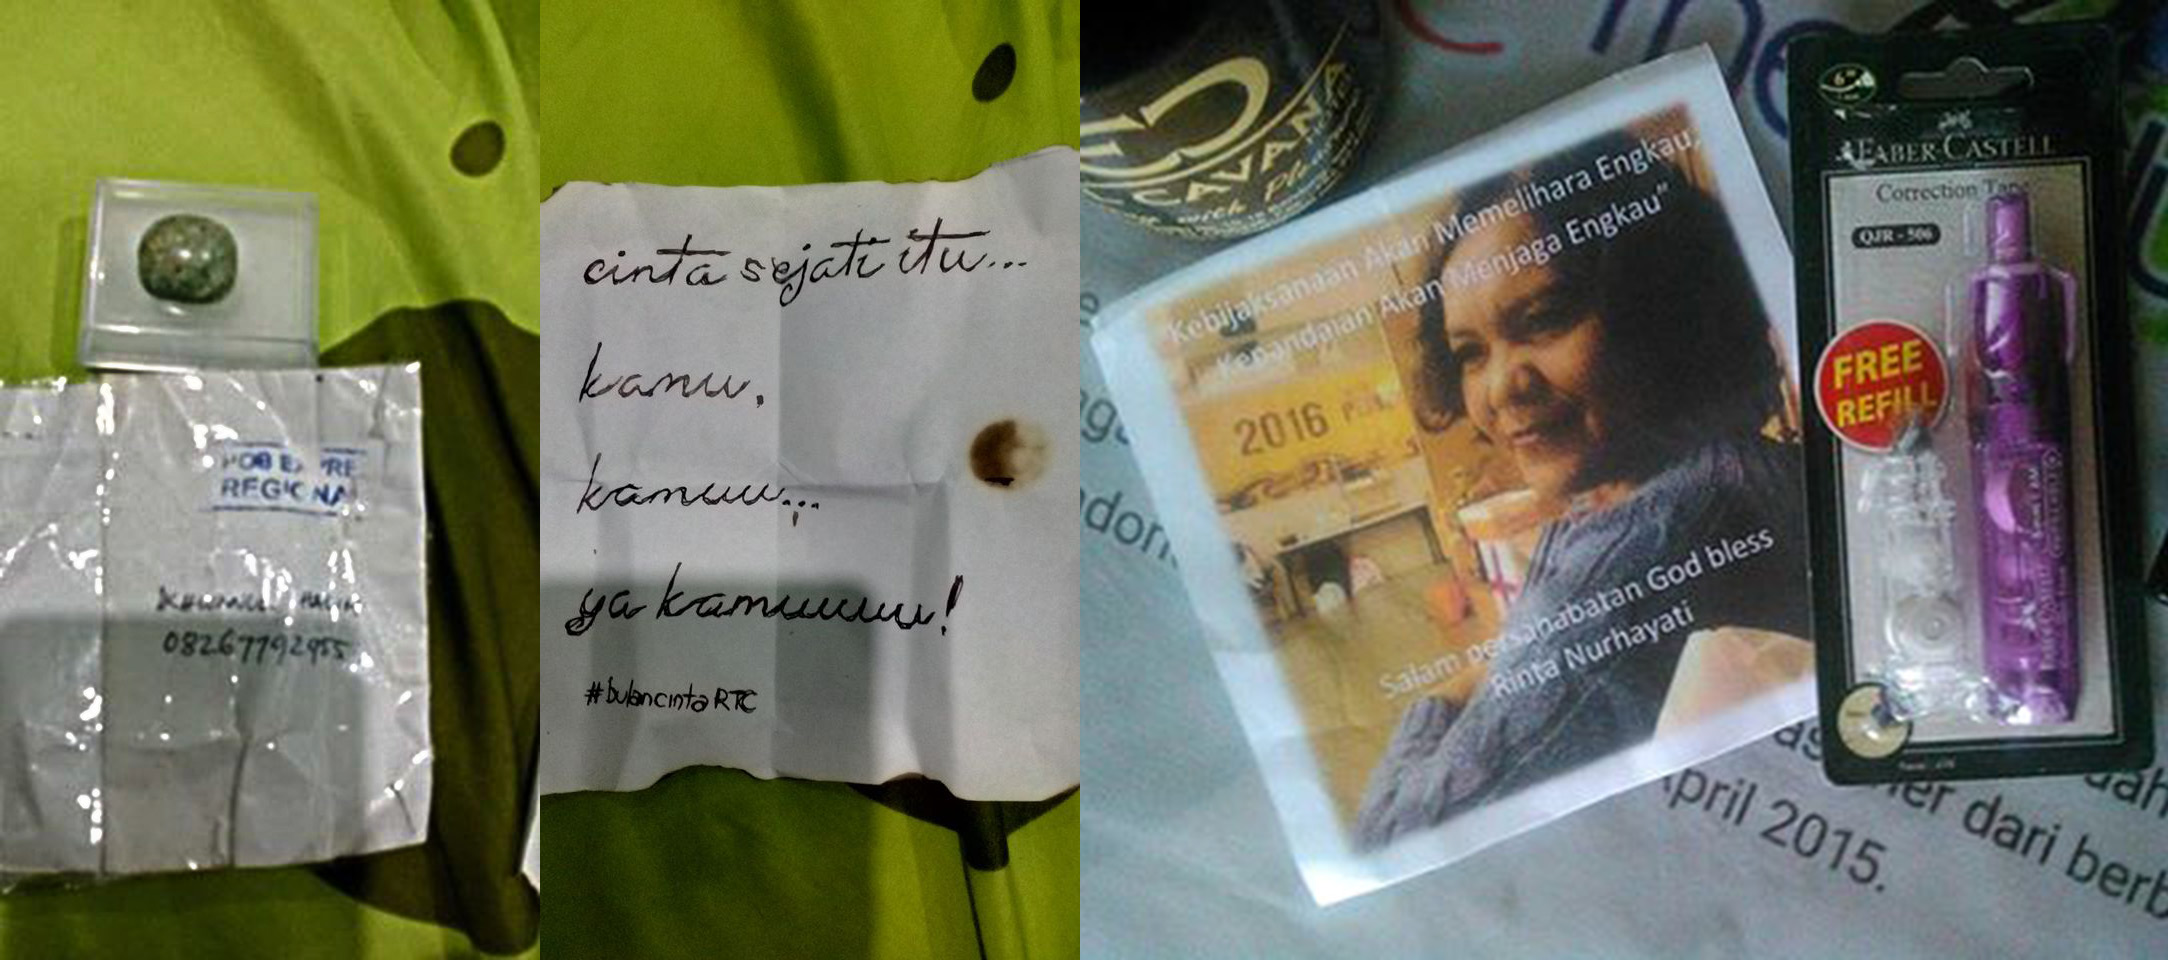 REGIONAL
08267792955
cinta sejati itu...
kamu,
kamuu...
ya kamuuuuu!
#bulancintaRTC
CAVANA
with
Kebijaksanaan Akan Memelihara Engkau,
Kepandaian Akan Menjaga Engkau"
2016
Salam persahabatan God bless
Rinta Nurhayati
FABER-CASTELL
Correction Tape
QJR - 506
FREE
REFILL
dari berb
April 2015.